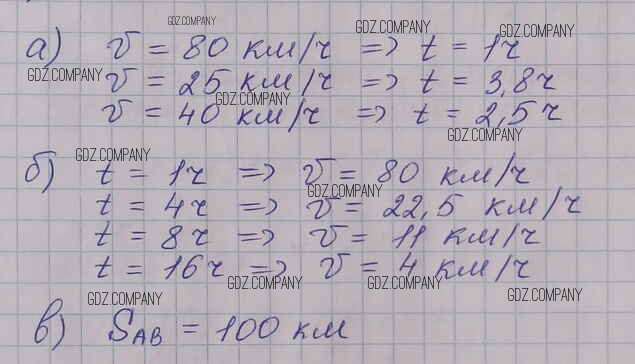 GDZ.COMPANY
а) v = 80 км/ч => t = 1ч
GDZ.COMPANY GDZ.COMPANY
GDZ.COMPANY v = 25 км/ч => t = 3,8ч
GDZ.COMPANY
v = 40 км/ч => t = 2,5ч
GDZ.COMPANY
GDZ.COMPANY
б) t = 1ч => v = 80 км/ч
GDZ.COMPANY
t = 4ч => v = 22,5 км/ч
t = 8ч => v = 11 км/ч
t = 16ч => v = 4 км/ч
GDZ.COMPANY GDZ.COMPANY
GDZ.COMPANY GDZ.COMPANY
в) SАВ = 100 км